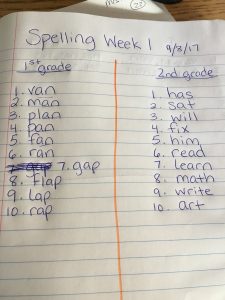 Spelling Week 1 9/8/17
1st grade
1. van
2. man
3. plan
4. pan
5. fan
6. ran
7. gap
8. flap
9. lap
10. rap
2nd grade
1. has
2. sat
3. will
4. fix
5. him
6. read
7. learn
8. math
9. write
10. art